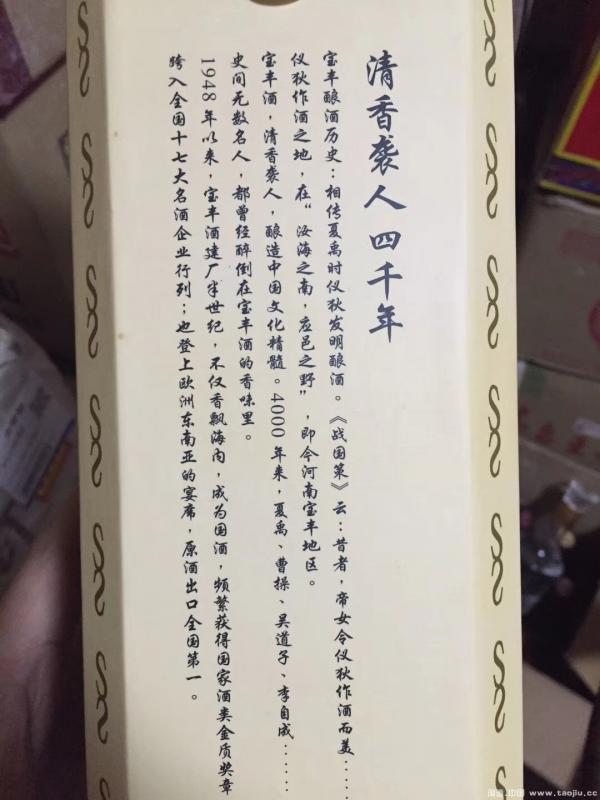 清香袭人四千年
宝丰酿酒历史：相传夏禹时仪狄发明酿酒。《战国策》云：昔者，帝女令仪狄作酒而美……
仪狄作酒之地，在“汝海之南，应邑之野”，即今河南宝丰地区。
宝丰酒，清香袭人，酿造中国文化精髓。4000年来，夏禹、曹操、吴道子、李自成……
史间无数名人，都曾经醉倒在宝丰酒的香味里。
1948年以来，宝丰酒建厂半世纪，不仅香飘海内，成为国酒，频繁获得国家酒类金质奖章
跨入全国十七大名酒企业行列；也登上欧洲东南亚的宴席，原酒出口全国第一。
www.taojiu.cc